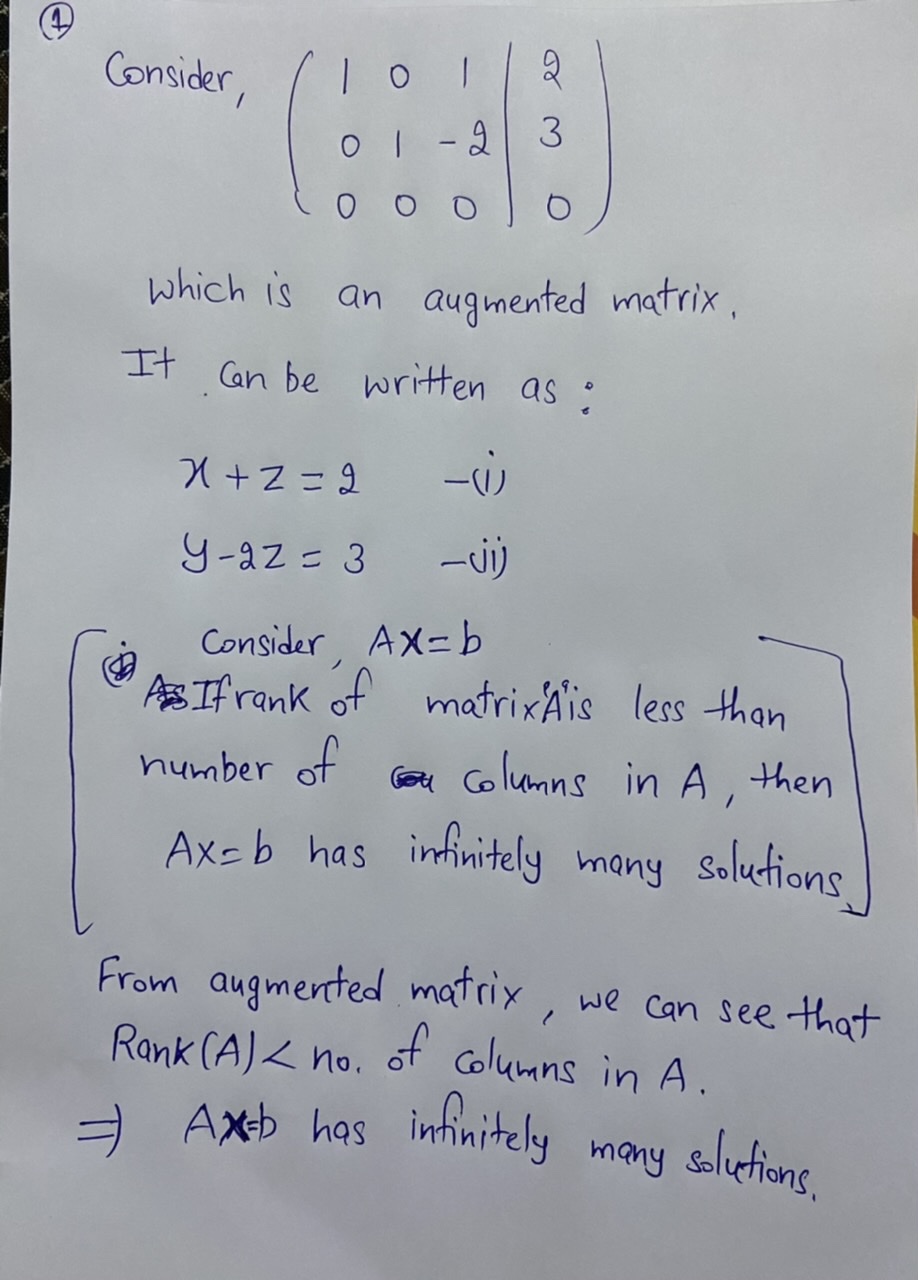 1
Consider, ( 1 0 1 | 2 )
0 1 -2 | 3
0 0 0 | 0
which is an augmented matrix.
It can be written as :
x + z = 2 -(i)
y - 2z = 3 -(ii)
Consider, AX = b
If rank of matrix 'A' is less than
number of columns in A, then
AX = b has infinitely many solutions.
From augmented matrix, we can see that
Rank(A) < no. of columns in A.
⇒ AX=b has infinitely many solutions.